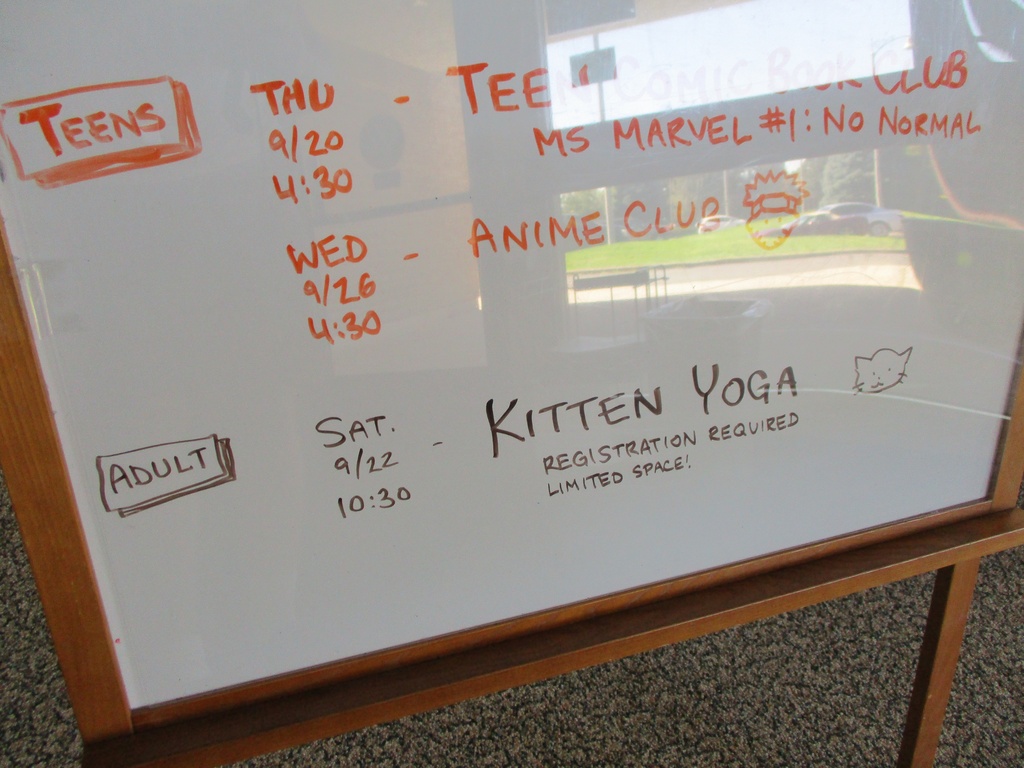 TEENS
THU - TEEN COMIC BOOK CLUB
9/20
MS MARVEL #1: NO NORMAL
4:30
WED - ANIME CLUB
9/26
4:30
ADULT
SAT. - KITTEN YOGA
9/22
REGISTRATION REQUIRED
10:30
LIMITED SPACE!